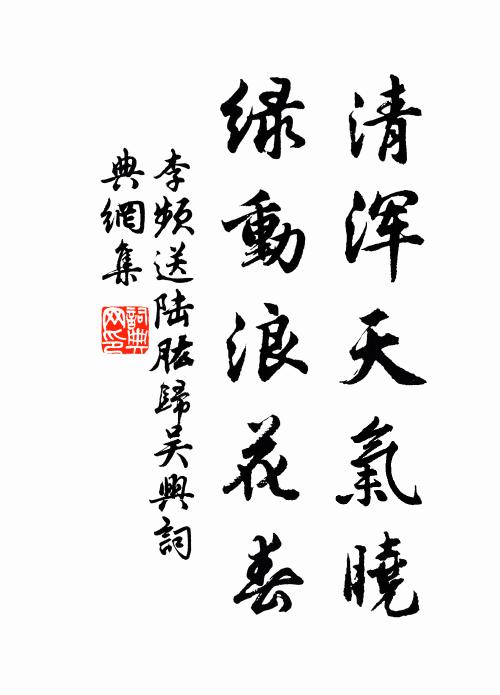 清浑天氣曉
緑動浪花春
李频送陆肱歸吴興詞
典網集
詞典
网印